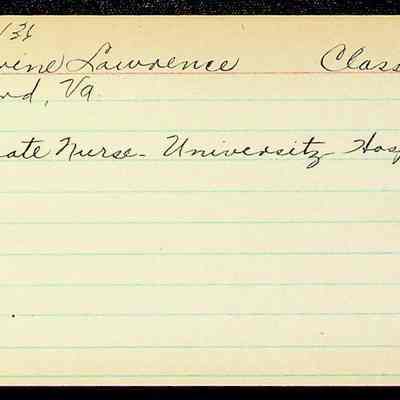 /36
rine Lawrence Class
rd, Va.
ate Nurse - University Hosp